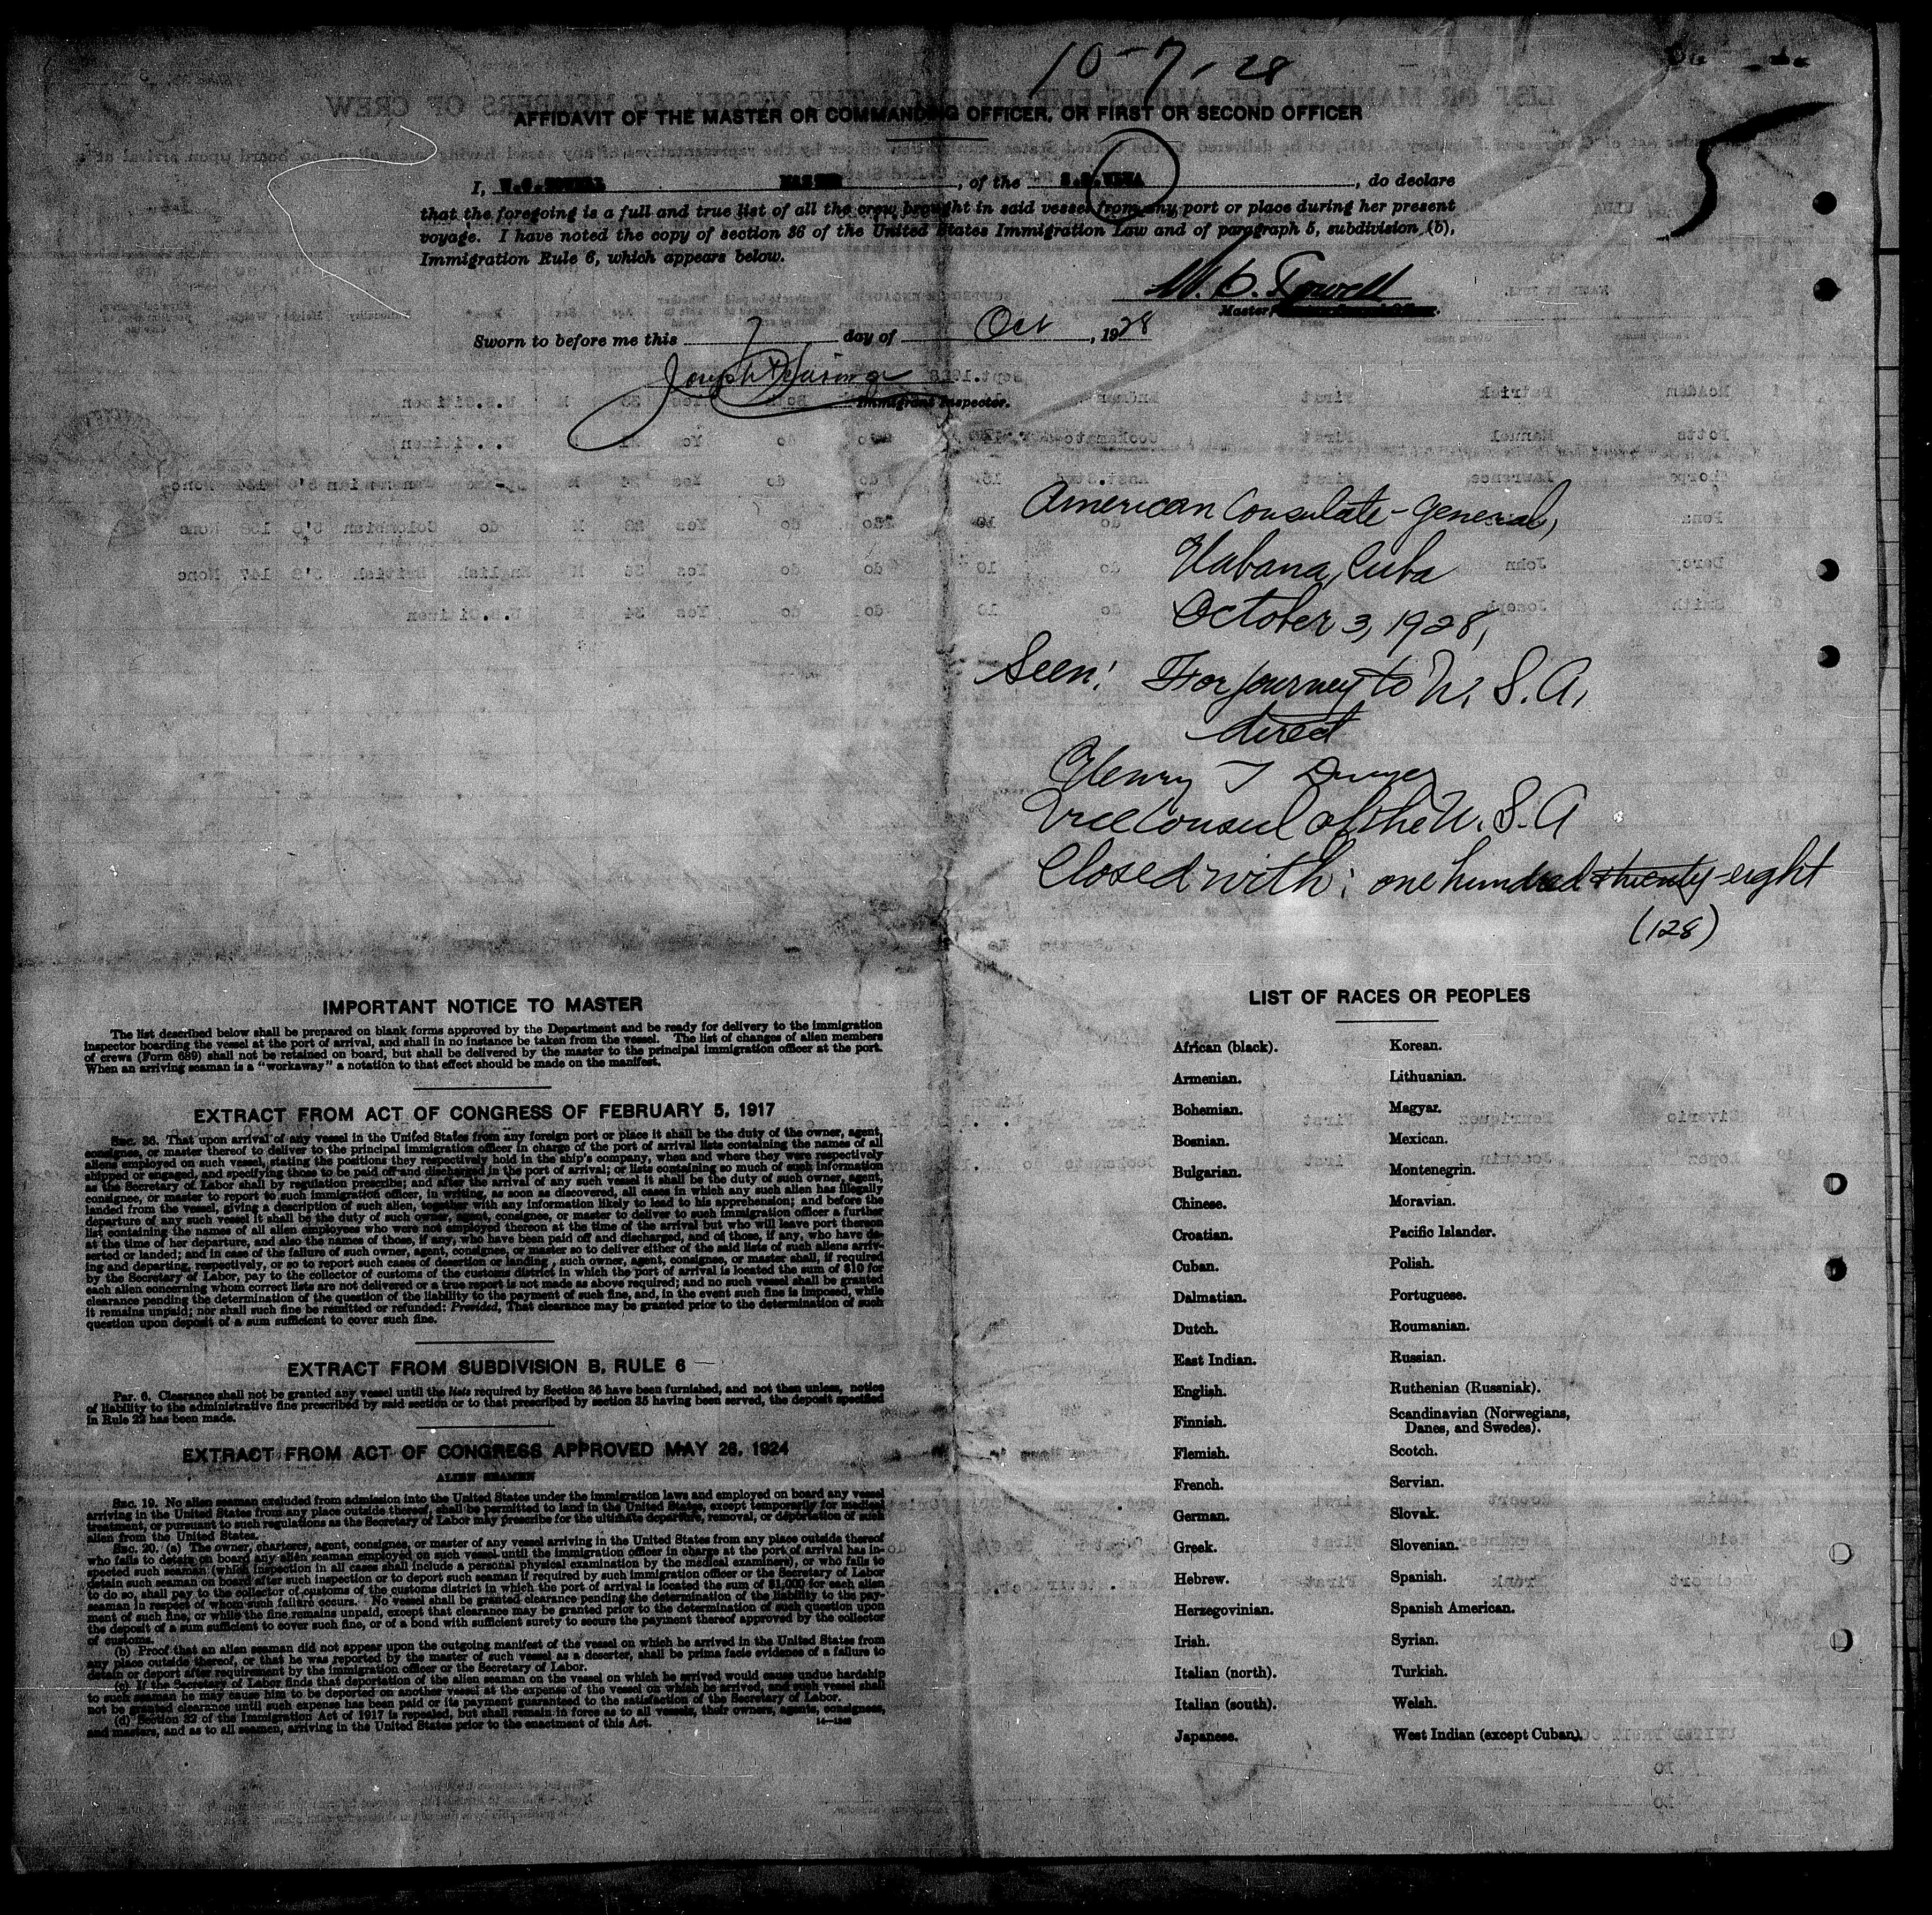 10-7-28
AFFIDAVIT OF THE MASTER OR COMMANDING OFFICER, OR FIRST OR SECOND OFFICER
I, MASTER, of the S.S., do declare
that the foregoing is a full and true list of all the crew brought in said vessel from any port or place during her present
voyage. I have noted the copy of section 36 of the United States Immigration Law and of paragraph 5, subdivision (b),
Immigration Rule 6, which appears below.
5
Master,
Sworn to before me this 7 day of Oct, 1928
Joseph
Immigrant Inspector.
American Consulate-General,
Habana, Cuba
October 3, 1928,
Seen: For journey to U.S.A.
direct
Henry T Dwyer
Vice Consul of the U.S.A
Closed with: one hundred twenty-eight
(128)
IMPORTANT NOTICE TO MASTER
The list described below shall be prepared on blank forms approved by the Department and be ready for delivery to the immigration
inspector boarding the vessel at the port of arrival, and shall in no instance be taken from the vessel. The list of changes of alien members
of crews (Form 689) shall not be retained on board, but shall be delivered by the master to the principal immigration officer at the port.
When an arriving seaman is a "workaway" a notation to that effect should be made on the manifest.
EXTRACT FROM ACT OF CONGRESS OF FEBRUARY 5, 1917
SEC. 36. That upon arrival of any vessel in the United States from any foreign port or place it shall be the duty of the owner, agent,
consignee, or master thereof to deliver to the principal immigration officer in charge of the port of arrival lists containing the names of all
aliens employed on such vessel, stating the positions they respectively hold in the ship's company, when and where they were respectively
shipped or engaged, and specifying those to be paid off and discharged in the port of arrival; or lists containing so much of such information
as the Secretary of Labor shall by regulation prescribe; and after the arrival of any such vessel it shall be the duty of such owner, agent,
consignee, or master to report to such immigration officer, in writing, as soon as discovered, all cases in which any such alien has illegally
landed from the vessel, giving a description of such alien, together with any information likely to lead to his apprehension; and before the
departure of any such vessel it shall be the duty of such owner, agent, consignee, or master to deliver to such immigration officer a further
list containing the names of all alien employees who were not employed thereon at the time of the arrival but who will leave port thereon
at the time of her departure, and also the names of those, if any, who have been paid off and discharged, and of those, if any, who have de-
serted or landed; and in case of the failure of such owner, agent, consignee, or master so to deliver either of the said lists of such aliens arriv-
ing and departing, respectively, or so to report such cases of desertion or landing, such owner, agent, consignee, or master shall, if required
by the Secretary of Labor, pay to the collector of customs of the customs district in which the port of arrival is located the sum of $10 for
each alien concerning whom correct lists are not delivered or a true report is not made as above required; and no such vessel shall be granted
clearance pending the determination of the question of the liability to the payment of such fine, and, in the event such fine is imposed, while
it remains unpaid; nor shall such fine be remitted or refunded: Provided, That clearance may be granted prior to the determination of such
question upon deposit of a sum sufficient to cover such fine.
EXTRACT FROM SUBDIVISION B, RULE 6
Par. 6. Clearance shall not be granted any vessel until the lists required by Section 36 have been furnished, and not then unless, notice
of liability to the administrative fine prescribed by said section or to that prescribed by section 35 having been served, the deposit specified
in Rule 22 has been made.
EXTRACT FROM ACT OF CONGRESS APPROVED MAY 26, 1924
ALIEN SEAMEN
SEC. 19. No alien seaman excluded from admission into the United States under the immigration laws and employed on board any vessel
arriving in the United States from any place outside thereof, shall be permitted to land in the United States, except temporarily for medical
treatment, or pursuant to such regulations as the Secretary of Labor may prescribe for the ultimate departure, removal, or deportation of such
alien from the United States.
SEC. 20. (a) The owner, charterer, agent, consignee, or master of any vessel arriving in the United States from any place outside thereof
who fails to detain on board any alien seaman employed on such vessel until the immigration officer in charge at the port of arrival has in-
spected such seaman (which inspection in all cases shall include a personal physical examination by the medical examiners), or who fails to
detain such seaman on board after such inspection or to deport such seaman if required by such immigration officer or the Secretary of Labor
to do so, shall pay to the collector of customs of the customs district in which the port of arrival is located the sum of $1,000 for each alien
seaman in respect of whom such failure occurs. No vessel shall be granted clearance pending the determination of the liability to the pay-
ment of such fine, or while the fine remains unpaid, except that clearance may be granted prior to the determination of such question upon
the deposit of a sum sufficient to cover such fine, or of a bond with sufficient surety to secure the payment thereof approved by the collector
of customs.
(b) Proof that an alien seaman did not appear upon the outgoing manifest of the vessel on which he arrived in the United States from
any place outside thereof, or that he was reported by the master of such vessel as a deserter, shall be prima facie evidence of a failure to
detain or deport after requirement by the immigration officer or the Secretary of Labor.
(c) If the Secretary of Labor finds that deportation of the alien seaman on the vessel on which he arrived would cause undue hardship
to such seaman he may cause him to be deported on another vessel at the expense of the vessel on which he arrived, and such vessel shall
not be granted clearance until such expense has been paid or its payment guaranteed to the satisfaction of the Secretary of Labor.
(d) Section 32 of the Immigration Act of 1917 is repealed, but shall remain in force as to all vessels, their owners, agents, consignees,
and masters, and as to all seamen, arriving in the United States prior to the enactment of this Act.
LIST OF RACES OR PEOPLES
African (black). Korean.
Armenian. Lithuanian.
Bohemian. Magyar.
Bosnian. Mexican.
Bulgarian. Montenegrin.
Chinese. Moravian.
Croatian. Pacific Islander.
Cuban. Polish.
Dalmatian. Portuguese.
Dutch. Roumanian.
East Indian. Russian.
English. Ruthenian (Russniak).
Finnish. Scandinavian (Norwegians,
Danes, and Swedes).
Flemish. Scotch.
French. Servian.
German. Slovak.
Greek. Slovenian.
Hebrew. Spanish.
Herzegovinian. Spanish American.
Irish. Syrian.
Italian (north). Turkish.
Italian (south). Welsh.
Japanese. West Indian (except Cuban).